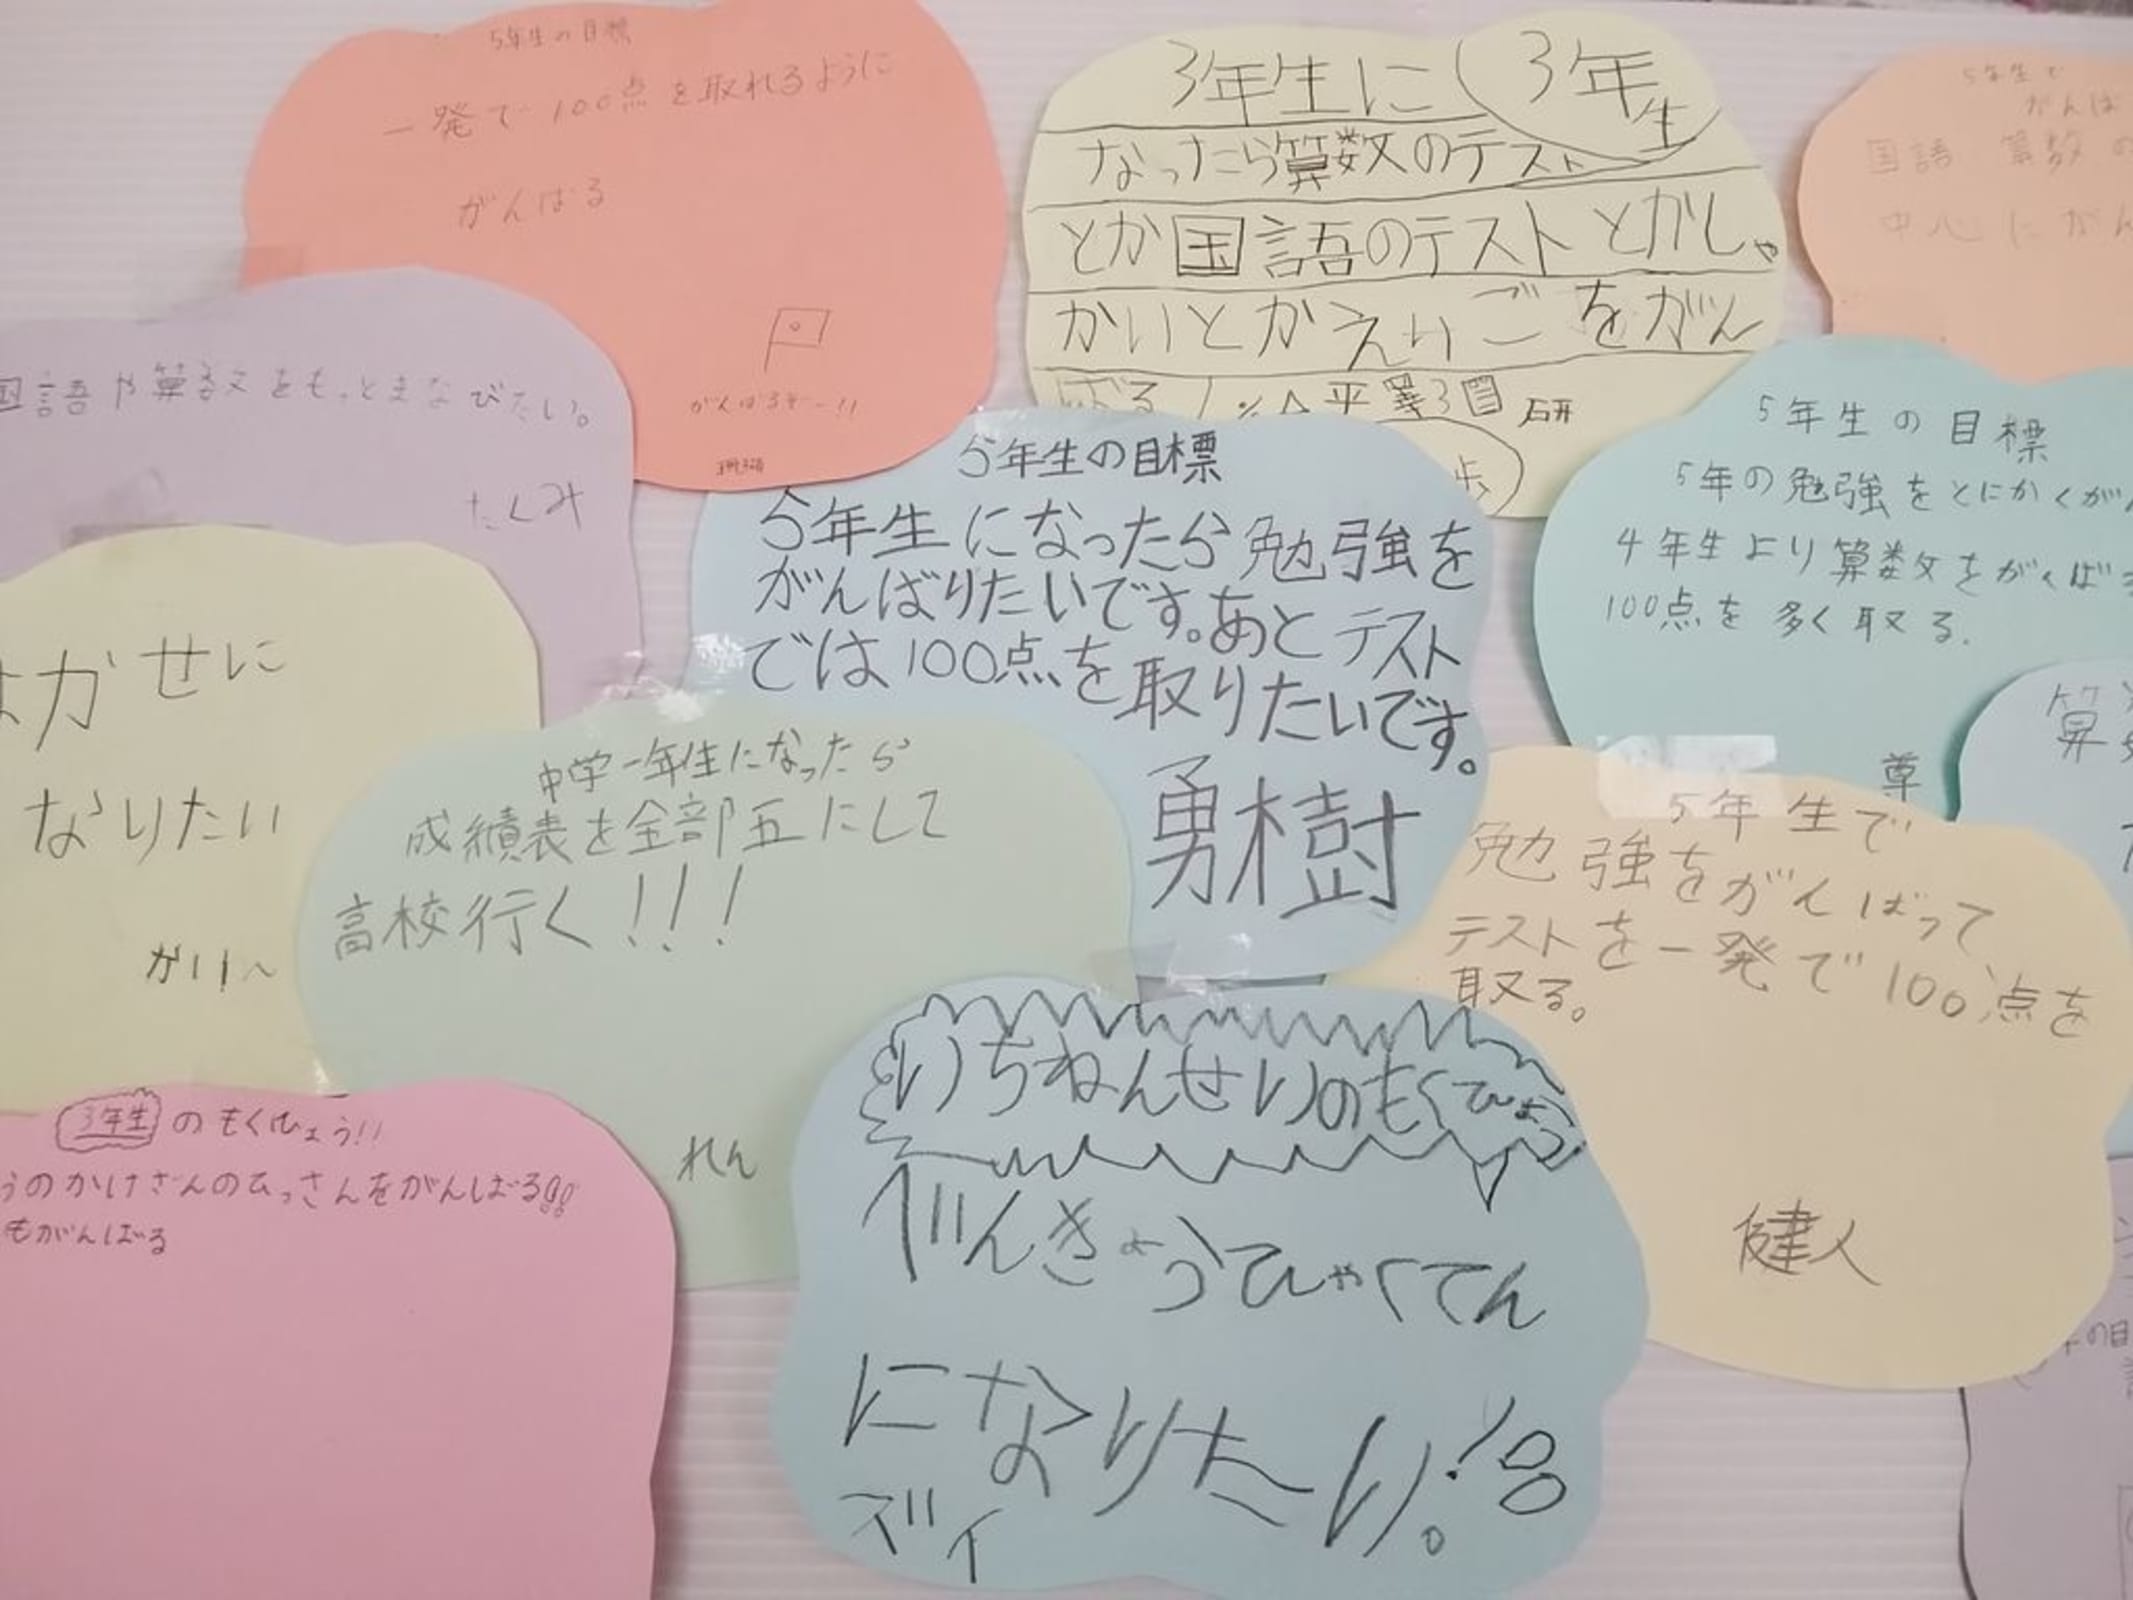 5年生の目標
一発で100点を取れるように
がんばる
がんばるぞー!!
3年生に
3年生
なったら算数のテスト
とか国語のテストとかしゃ
かいとかえいごをがん
ばる
歩
5年生で
がんば
国語 算数の
中心にがん
国語や算数をもっとまなびたい。
たくみ
5年生の目標
5年生になったら勉強を
がんばりたいです。あとテスト
では100点を取りたいです。
勇樹
5年生の目標
5年の勉強をとにかくがん
4年生より算数をがんば
100点を多く取る.
尊
かせに
なりたい
かい
中学一年生になったら
成績表を全部五にして
高校行く!!!
れん
算
5年生で
勉強をがんばって
テストを一発で100点を
取る。
健人
3年生のもくひょう!!
うのかけざんのひっさんをがんばる!!
もがんばる
いちねんせいのもくひょう
べんきょうひゃくてん
になりたい。!!
の目